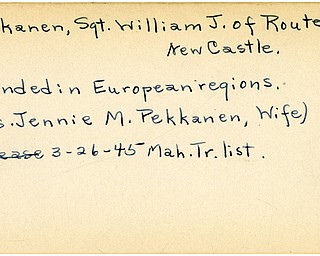 kanen, Sgt. William J. of Route
New Castle.
nded in European regions.
s. Jennie M. Pekkanen, Wife)
ease 3-26-45 Mah. Tr. list.